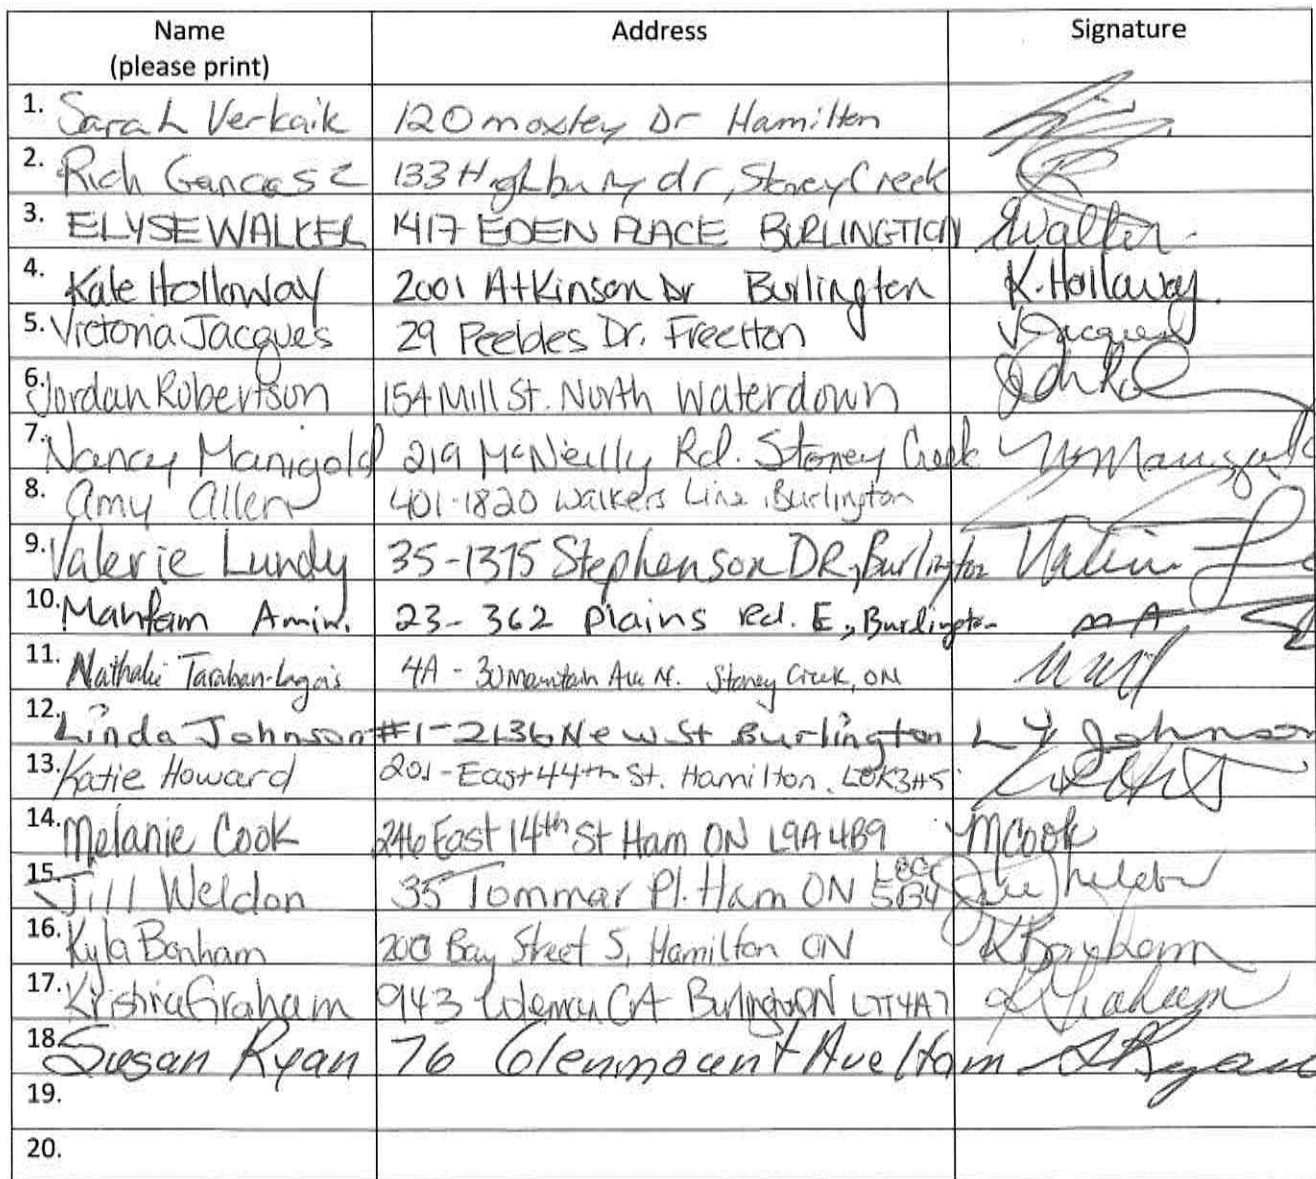 Name Address Signature
(please print)
1. Sarah Verkaik 120 moxley Dr Hamilton
2. Rich Gancasz 133 Highbury dr, Stoney Creek
3. ELYSE WALKER 1417 EDEN PLACE BURLINGTION Walker
4. Kate Holloway 2001 Atkinson Dr Burlington K. Holloway.
5. Victoria Jacques 29 Peebles Dr. Freelton VJacques
6. Jordan Robertson 154 Mill St. North Waterdown
7. Nancy Manigold 219 McNeilly Rd. Stoney Creek
8. Amy Allen 401-1820 Walkers Line, Burlington
9. Valerie Lundy 35-1375 Stephenson DR, Burlington Valerie
10. Amin. 23-362 Plains rd. E, Burlington MA
11. Nathalie 4A - 30 Mountain Ave N. Stoney Creek, ON
12. Linda Johnson #1-2136 New St Burlington L Johnson
13. Katie Howard 201-East 44th St. Hamilton. L8K3H5
14. Melanie Cook 246 East 14th St Ham ON L9A 4B9 MCook
15. Jill Weldon 35 Tommar Pl. Ham ON
16. Kyla Bonham 200 Bay Street S, Hamilton ON KBonham
17. Graham 943 Burlington ON L7T4A7 KGraham
18. Susan Ryan 76 Glenmount Ave Ham SRyan
19.
20.